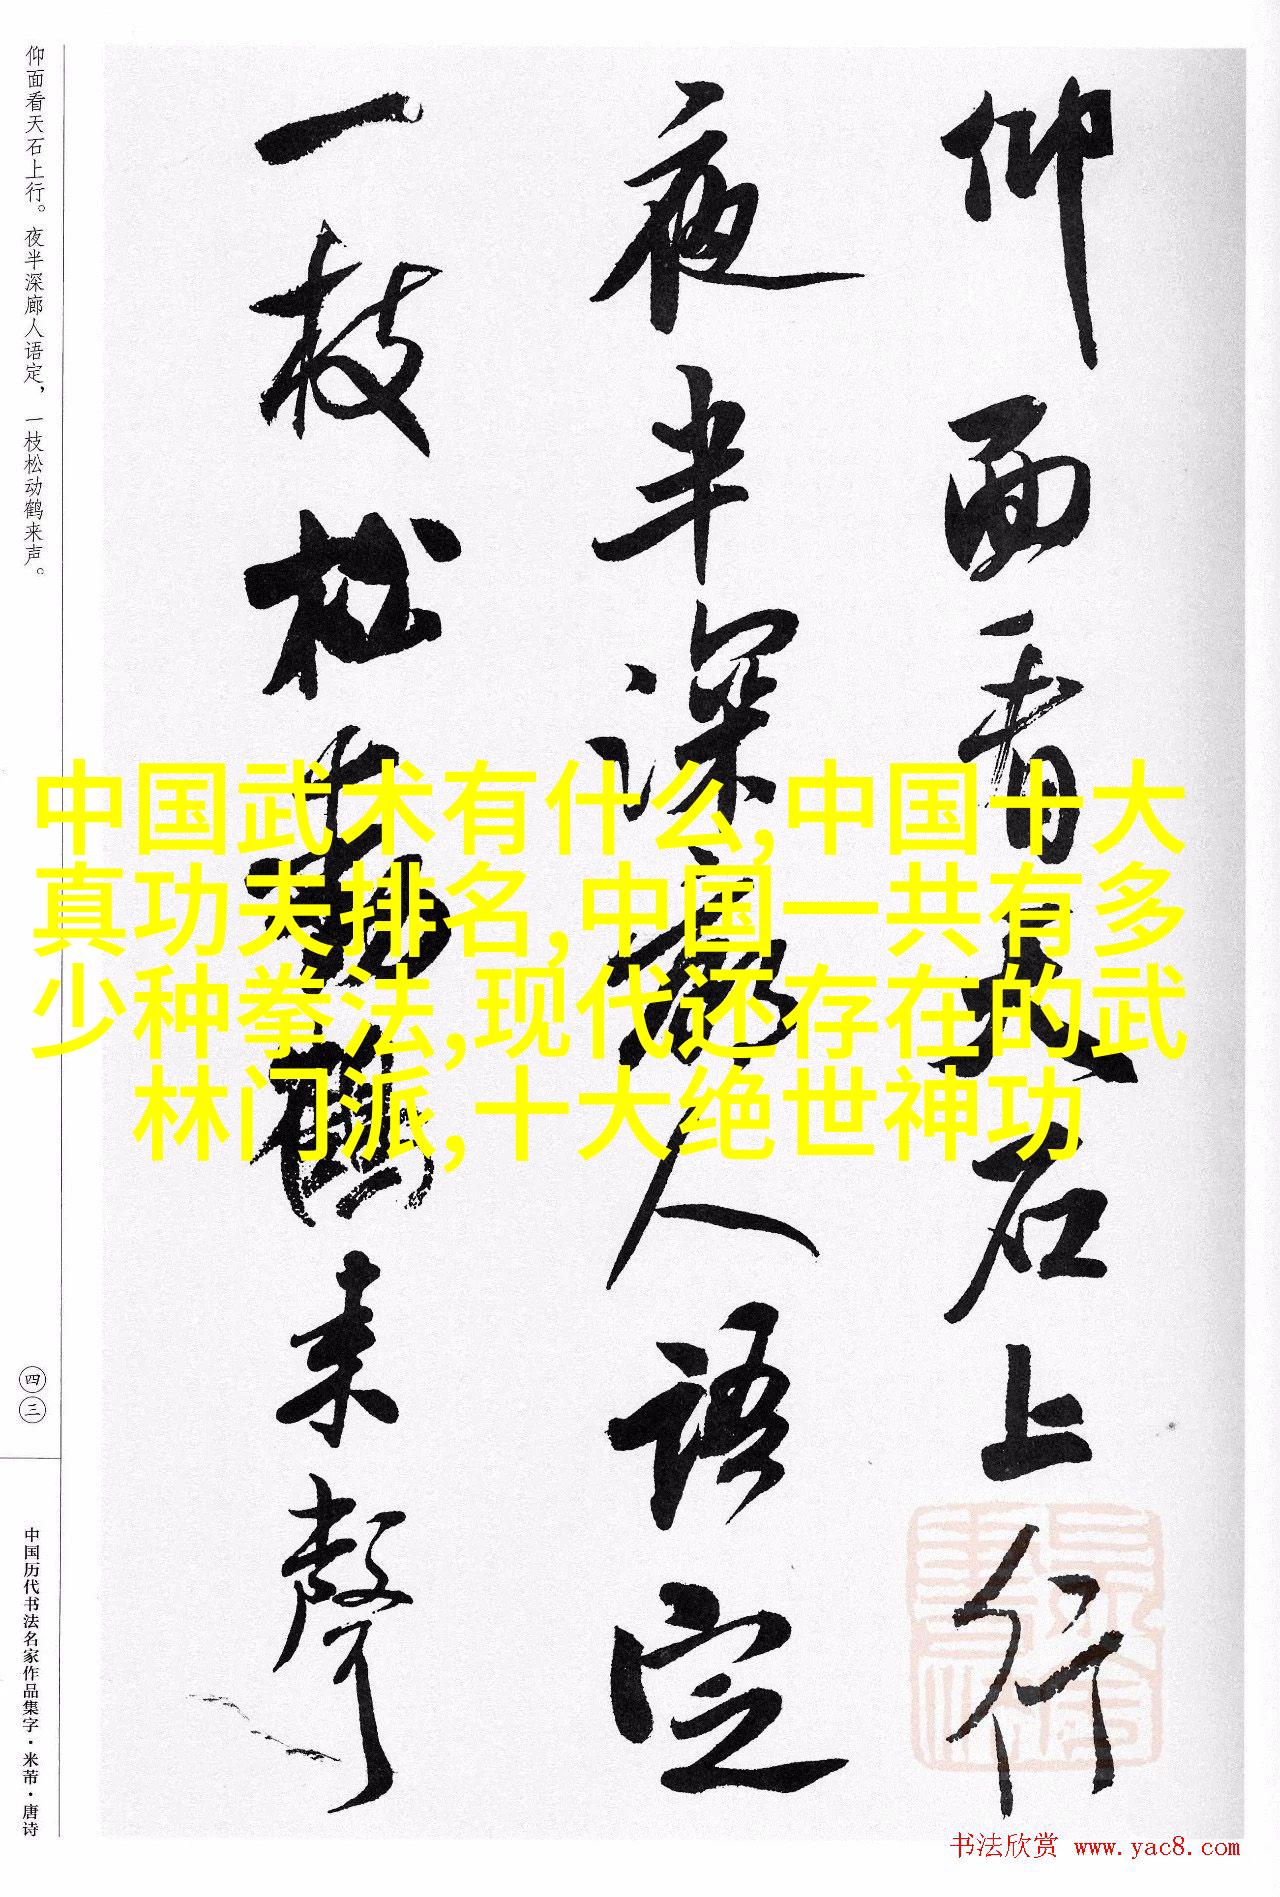 仰面看天石上行。夜半深廊人语定，一枝松动鹤来声。
四三
中国历代书法名家作品集字·米芾·唐诗
仰面看天石上行
夜半深廊人語定
一枝松動鶴来聲
中国武术有什么,中国十大
真功夫排名,中国一共有多
少种拳法,现代还存在的武
林门派,十大绝世神功
书法欣赏 www.yac8.com